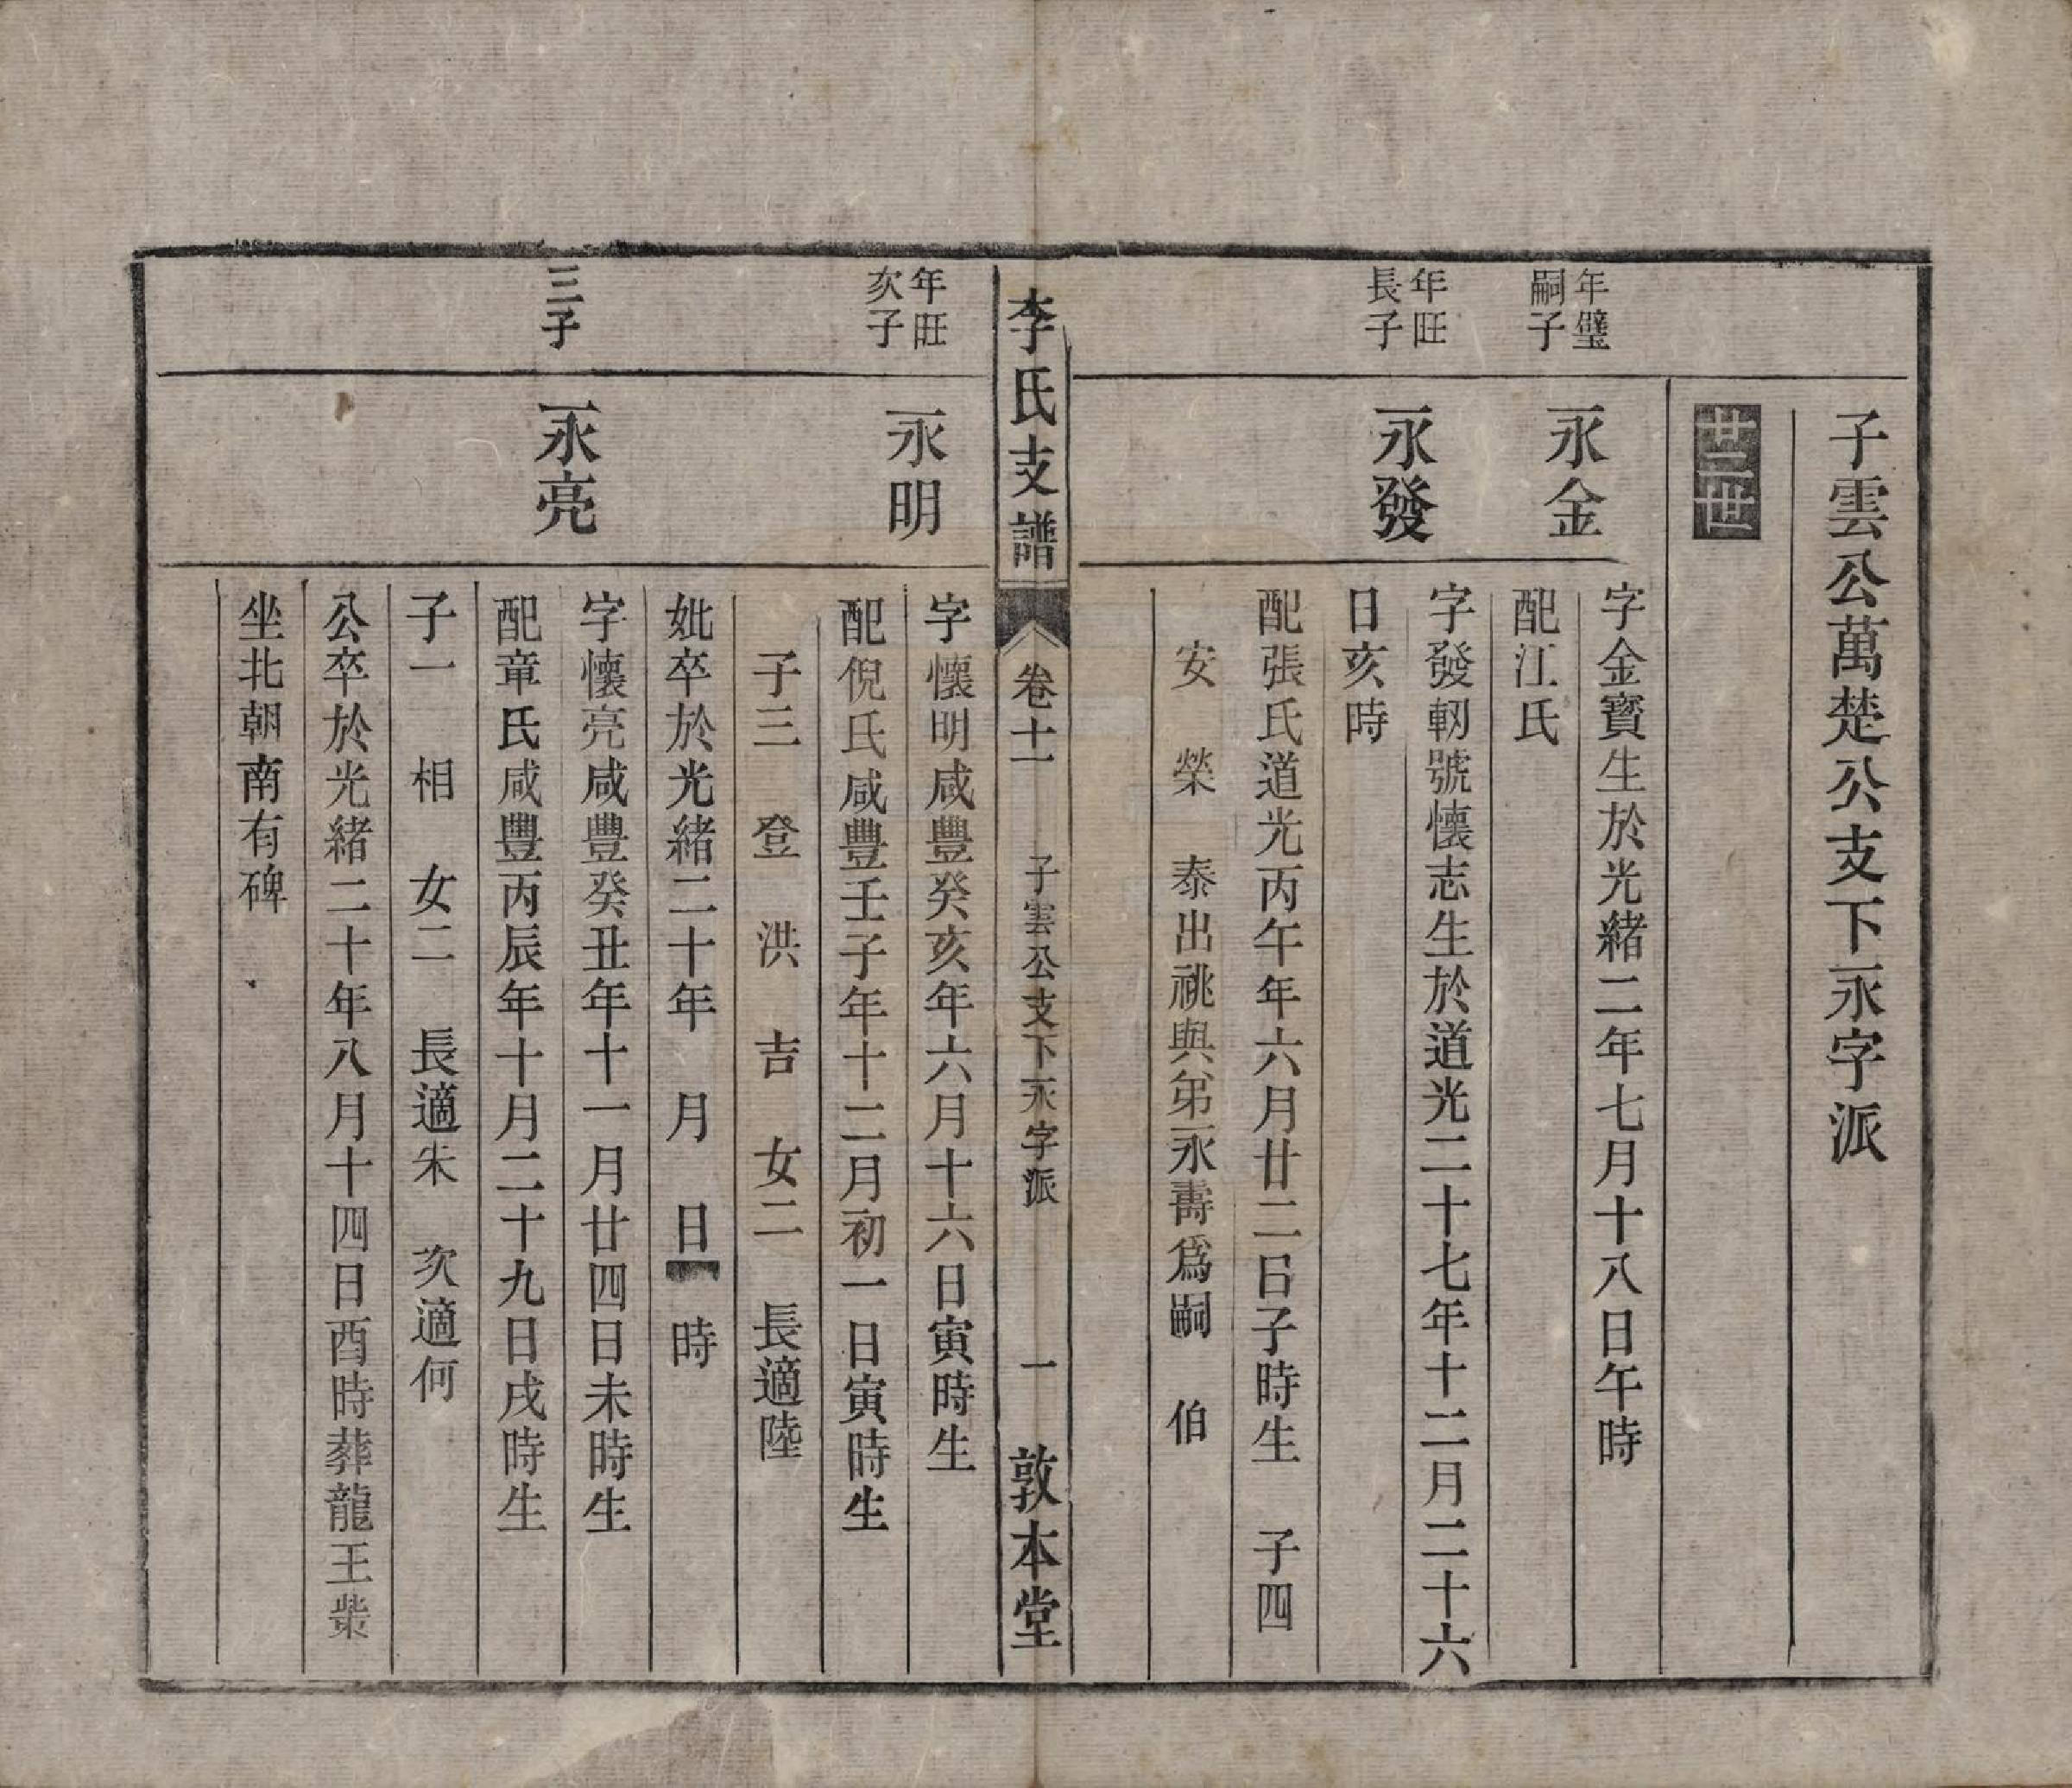 子雲公萬楚公支下永字派
廿二世
年璧
嗣子
永金
字金寶生於光緒二年七月十八日午時
配江氏
年旺
長子
永發
字發軔號懷志生於道光二十七年十二月二十六
日亥時
配張氏道光丙午年六月廿二日子時生 子四
安 榮 泰出祧與弟永壽爲嗣 伯
李氏支譜 卷十一 子雲公支下永字派 一 敦本堂
年旺
次子
永明
字懷明咸豐癸亥年六月十六日寅時生
配倪氏咸豐壬子年十二月初一日寅時生
子三 登 洪 吉 女二 長適陸
妣卒於光緒二十年 月 日 時
三子
永亮
字懷亮咸豐癸丑年十一月廿四日未時生
配章氏咸豐丙辰年十月二十九日戌時生
子一 相 女二 長適朱 次適何
公卒於光緒二十年八月十四日酉時葬龍王柴
坐北朝南有碑